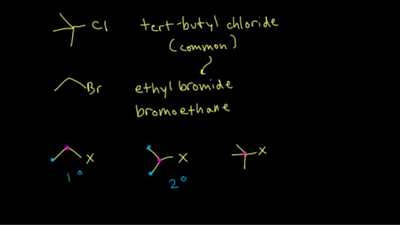 Cl tert-butyl chloride
(common)
Br ethyl bromide
bromoethane
X X X
1° 2°